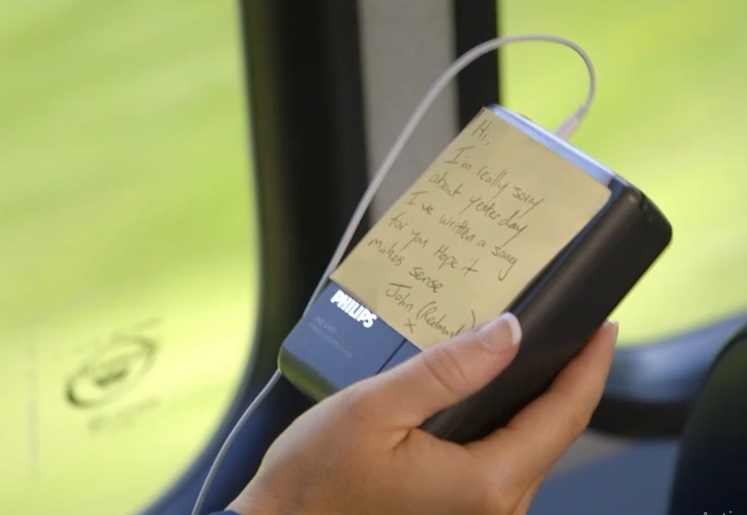 Hi,
I'm really sorry
about yesterday
I've written a song
for you Hope it
makes sense
John (Redmond)
x
PHILIPS